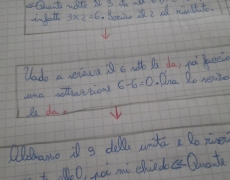 «Quante volte il 3 sta nel 6
infatti 3x2=6. Scrivo il 2 al risultato.
Vado a scrivere il 6 sotto le da, poi faccio
una sottrazione 6-6=0. Ora lo scrivo
le da.
Abbasso il 3 delle unità e lo riscrivo
allo 0, poi mi chiedo «Quante